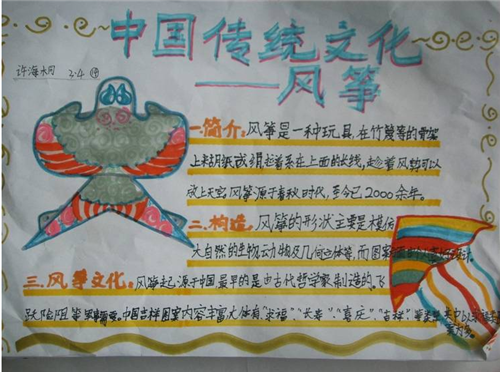 中国传统文化
——风筝
许海 2.4
一.简介:风筝是一种玩具,在竹篾等的骨架
上糊纸或绢,拉着系在上面的长线,趁着风势可以
放上天空,风筝源于春秋时代,至今已2000余年。
二.构造:风筝的形状主要是模仿
大自然的生物,动物及几何立体等,而图案
三.风筝文化:风筝起源于中国,最早的是由古代哲学家制造的。飞
中国吉祥图案内容丰富,大体有“求福”、“长寿”、“喜庆”、“吉祥”等类